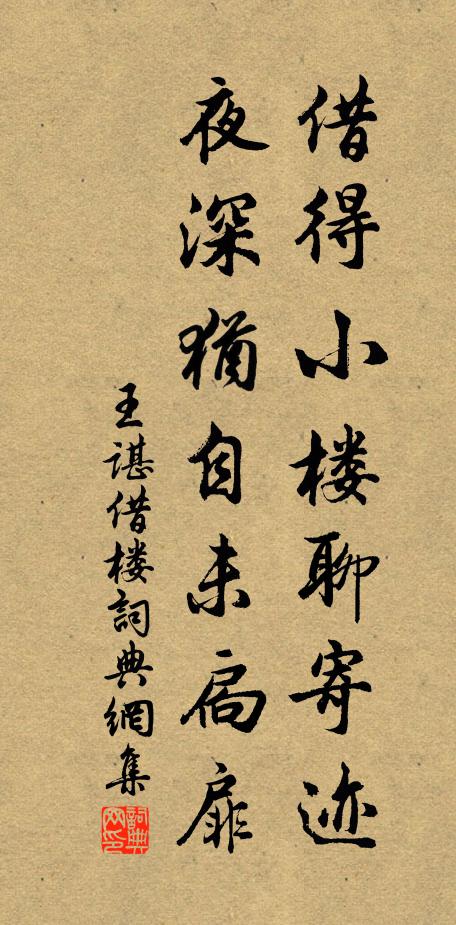 借得小楼聊寄迹
夜深猶自未扃扉
王谌借楼詞典網集
詞典网印